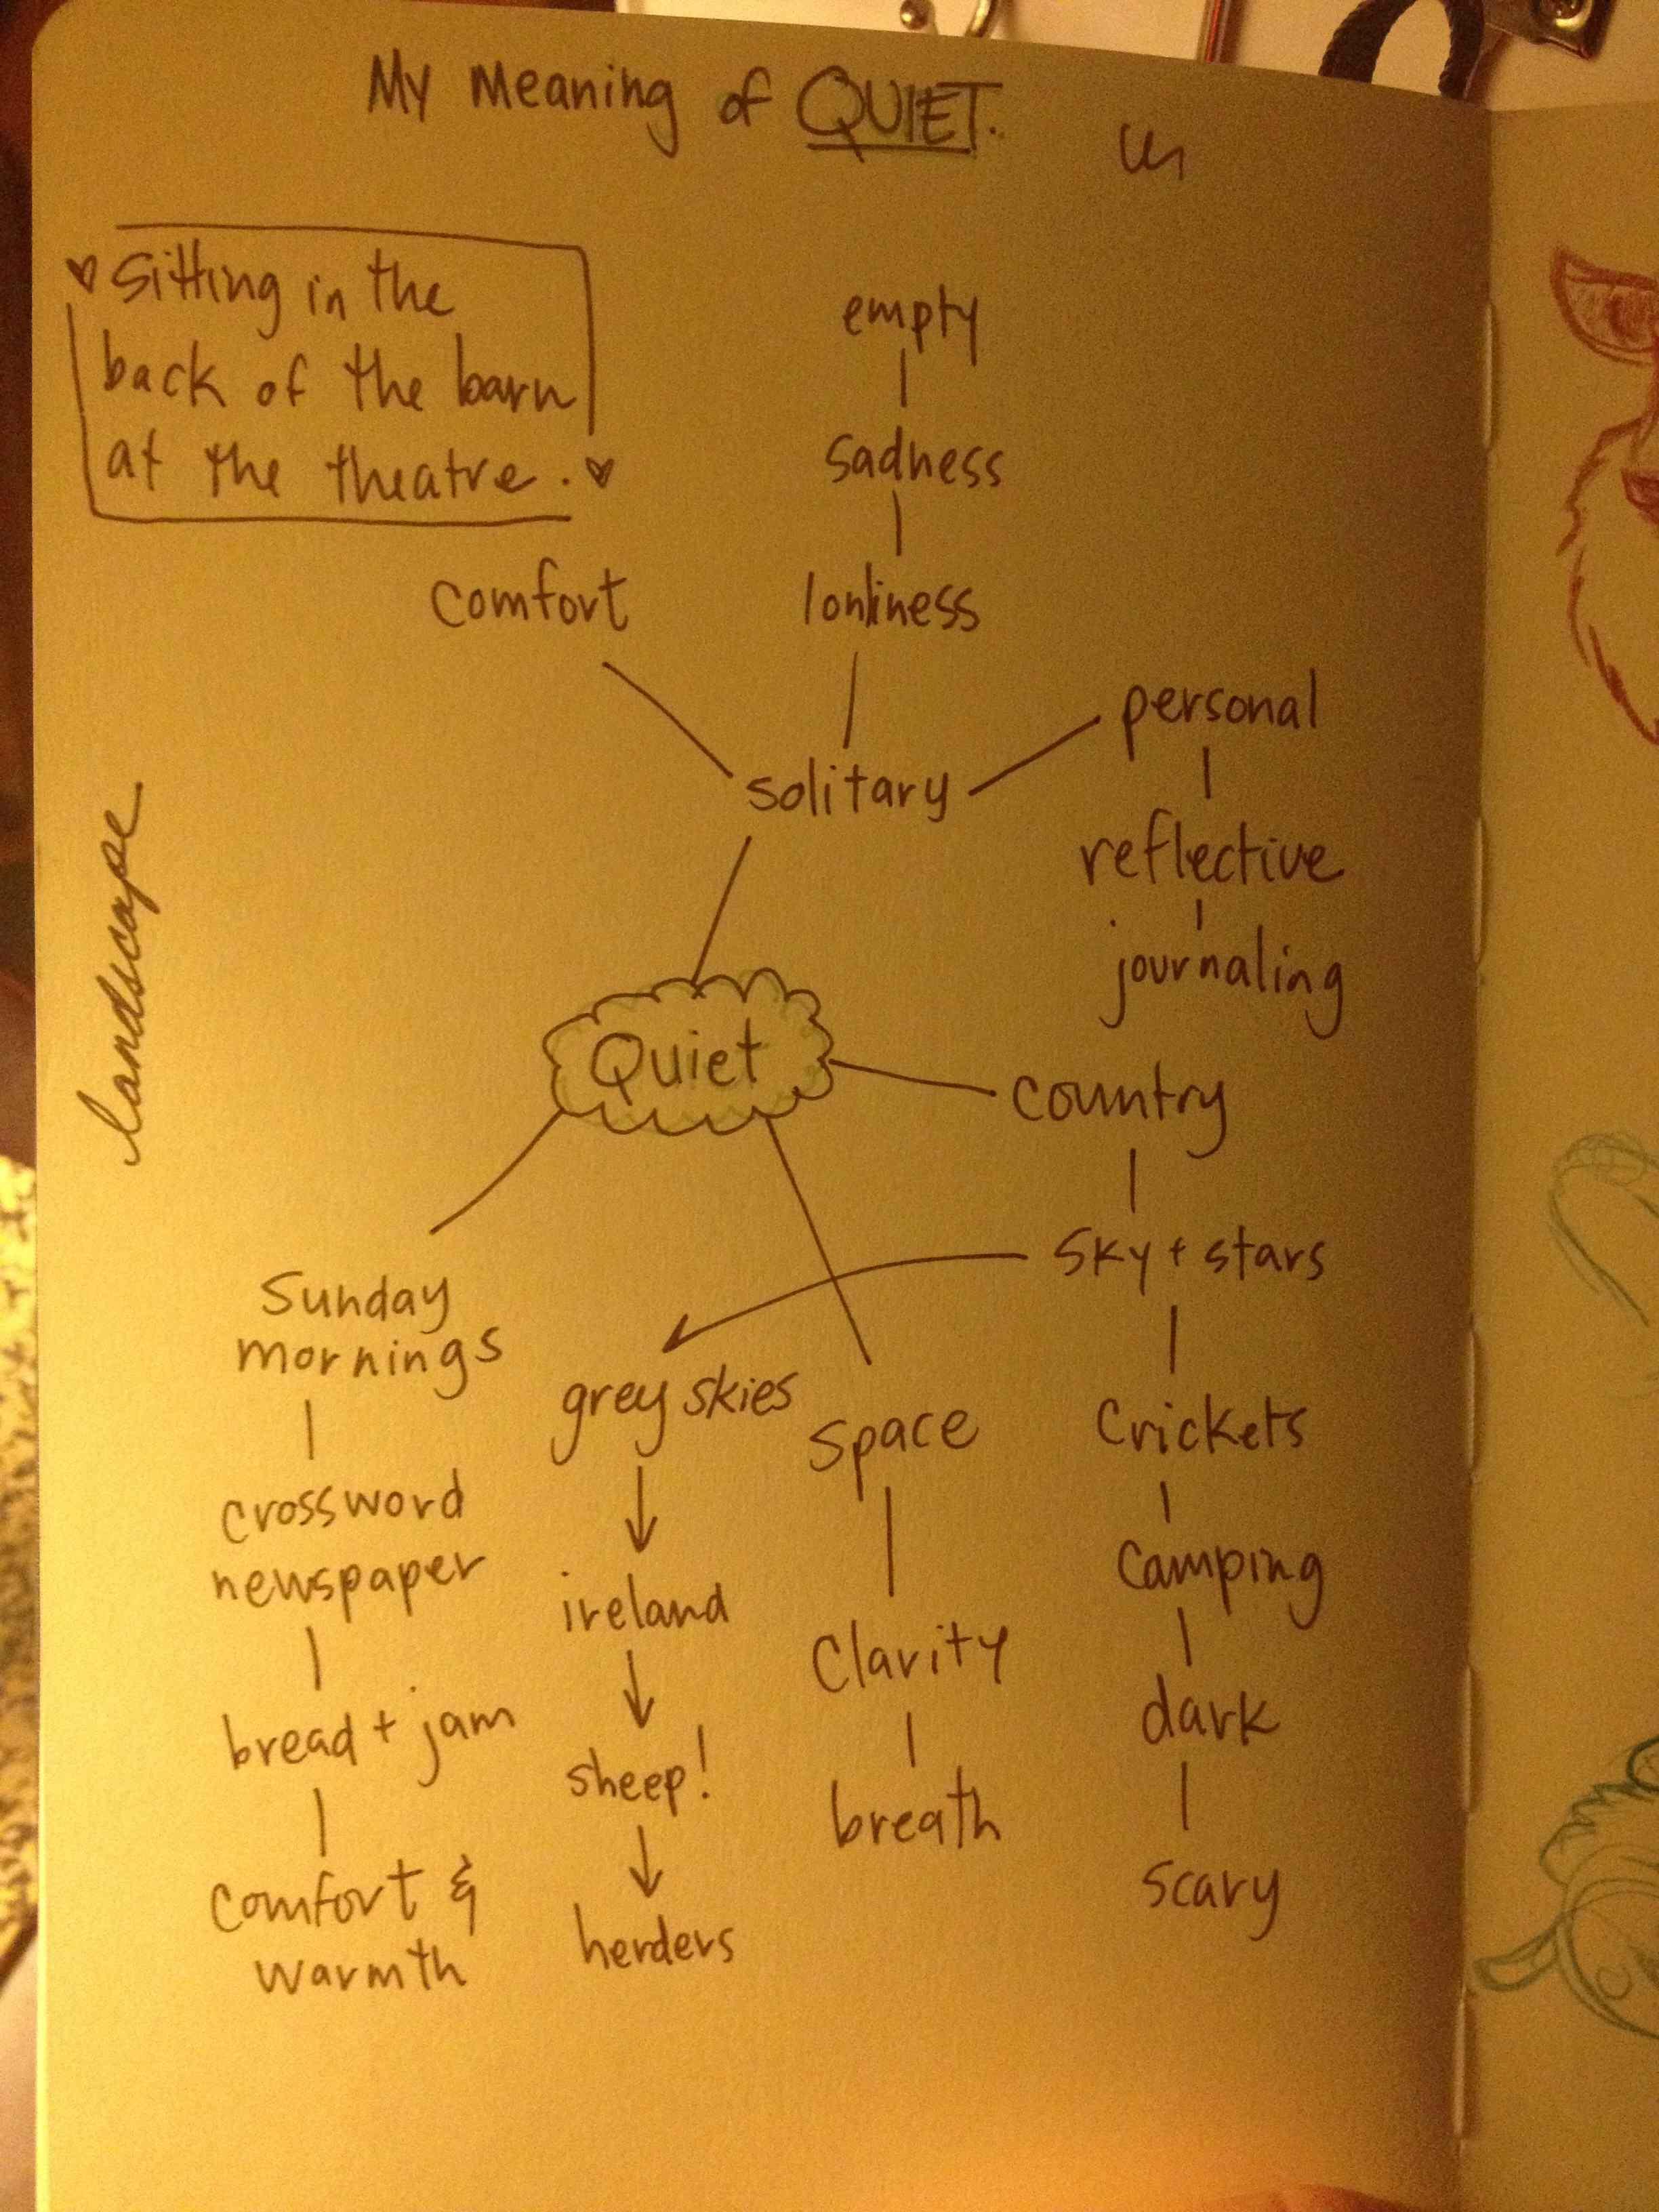 My Meaning of QUIET.
Sitting in the
back of the barn
at the theatre.
empty
sadness
lonliness
comfort
personal
solitary
reflective
journaling
landscape
Quiet
country
sky + stars
Sunday
mornings
grey skies
space
crickets
crossword
newspaper
ireland
camping
clarity
bread + jam
sheep!
dark
breath
comfort &
warmth
herders
scary